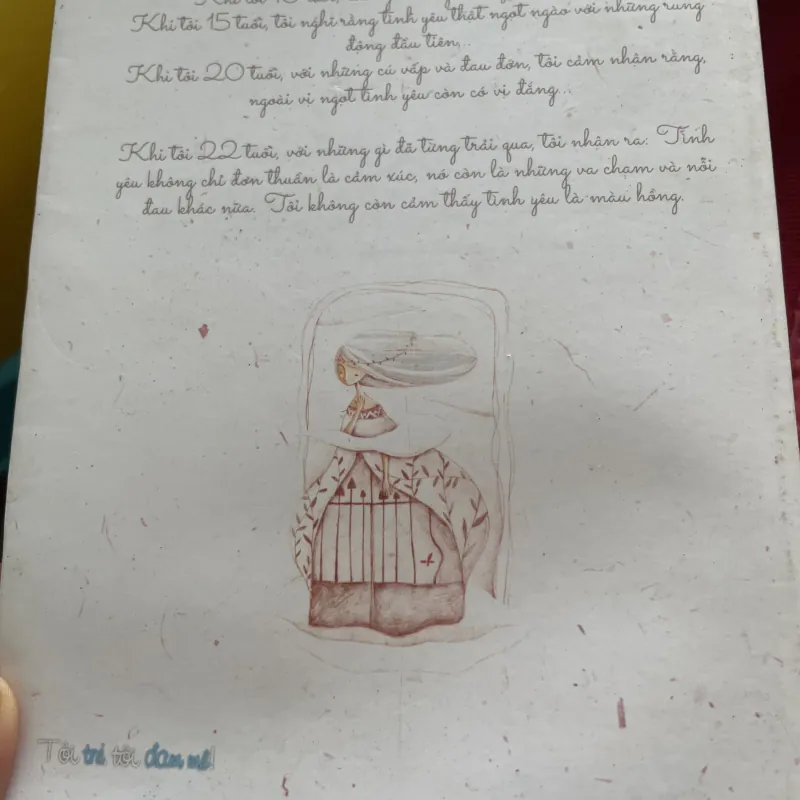 Khi tôi 15 tuổi, tôi nghĩ rằng tình yêu thật ngọt ngào với những rung
động đầu tiên...
Khi tôi 20 tuổi, với những cú vấp và đau đớn, tôi cảm nhận rằng,
ngoài vị ngọt tình yêu còn có vị đắng...
Khi tôi 22 tuổi, với những gì đã từng trải qua, tôi nhận ra: Tình
yêu không chỉ đơn thuần là cảm xúc, nó còn là những va chạm và nỗi
đau khác nữa. Tôi không còn cảm thấy tình yêu là màu hồng.
Tôi trẻ tôi đam mê!